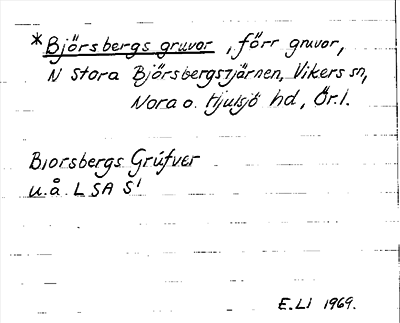 *Björsbergs gruvor, förr gruvor,
N Stora Björsbergstjärnen, Vikers sn,
Nora o. Hjulsjö hd, Ör. l.
Biorsbergs Grúfver
u.å. LSA S¹
E. Li 1969.